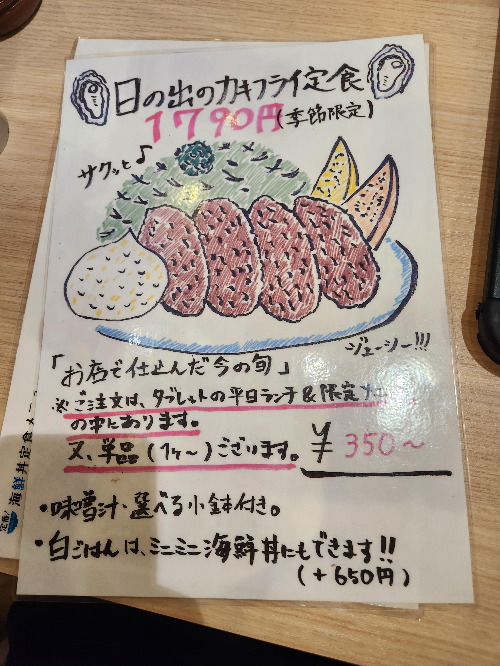 日の出のカキフライ定食
1790円(季節限定)
サクッと♪
ジューシー!!!
「お店で仕込んだ今の旬」
※ご注文は、タブレットの平日ランチ&限定
の中にあります。
又、単品(1ヶ〜)ございます。
¥350〜
・味噌汁・選べる小鉢付き。
・白ごはんは、ミニミニ海鮮丼にもできます!!
(+650円)
海鮮丼定食